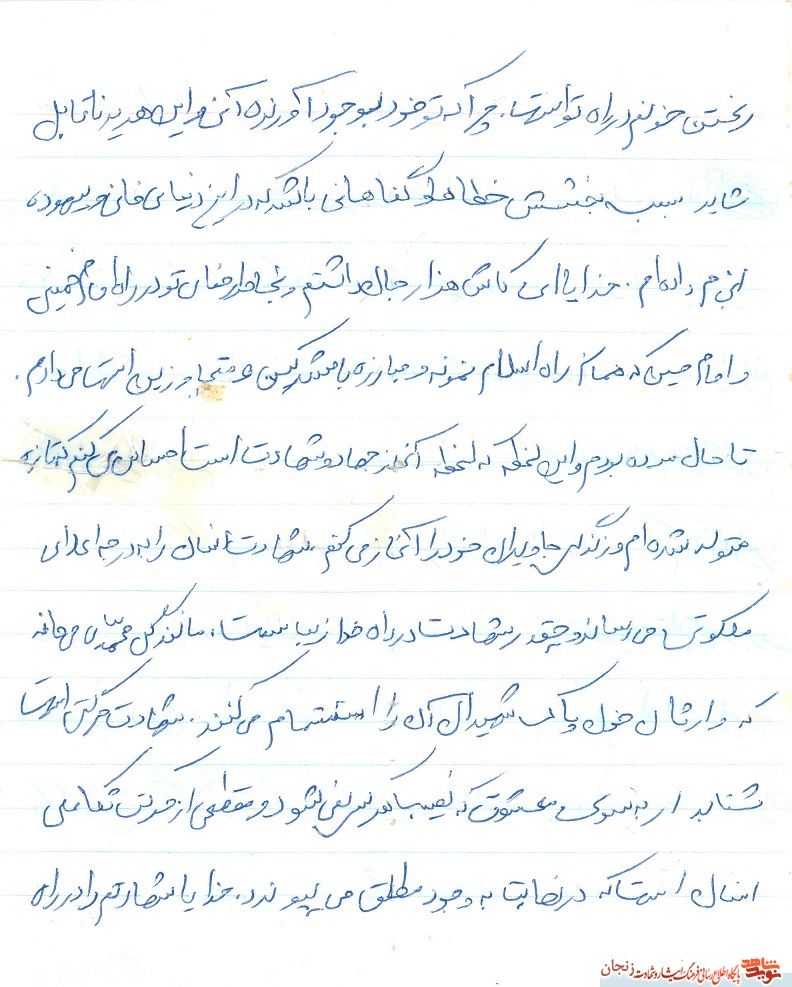 ریختن خونم در راه تو است، چرا که تو خود بوجود آورنده آنی و این هدیه ناقابل
شاید سبب بخشش خطاها و گناهانی باشد که در این دنیای فانی و بیهوده
انجام داده ام. خدایا ای کاش هزار جان داشتم و بخاطر رضای تو در راه امام خمینی
و امام حسین که همانا راه اسلام نمونه و مبارزه با مشرکین و متجاوزین است می دادم.
تا حال مرده بودم و این لحظه که لحظه آغاز جهاد و شهادت است احساس می کنم که تازه
متولد شده ام و زندگی جاویدان خود را آغاز می کنم. شهادت انسان را به درجه اعلای
ملکوتی می رساند و چقدر شهادت در راه خدا زیباست، مانند گل محمدی می ماند
که وارثان خون پاک شهیدان آن را استشمام می کنند. شهادت حرکتی است
شتابدار به سوی معشوق که نصیب هر کس نمی شود و مقطعی از حرکت تکاملی
انسان است که در نهایت به وجود مطلق می پیوندد. خدایا شهادتم را در راه
نوید شاهد پایگاه اطلاع رسانی فرهنگ ایثار و شهادت زنجان